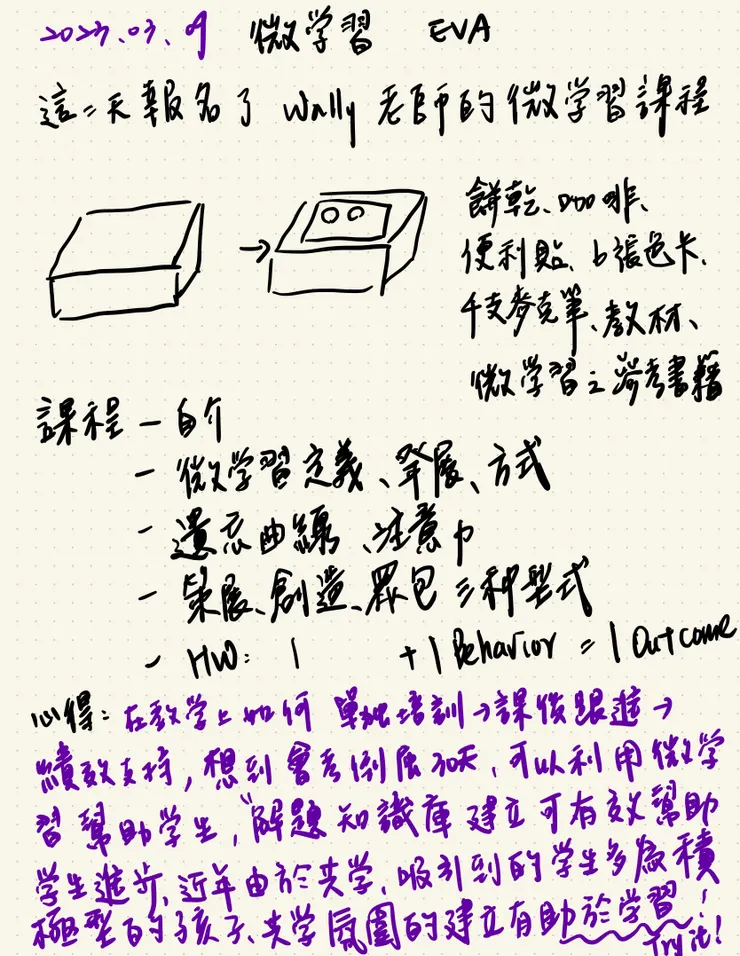 2023.03.09 微学習 EVA
這二天報名了 Wally 老師的微学習課程
餅乾、咖啡、
便利貼、6張色卡、
千支麥克筆、教材、
微学習之參考書籍
課程 - 自介
- 微学習定義、發展、方式
- 遺忘曲線、注意力
- 策展、創造、眾包 三種型式
- HW: 1 + 1 Behavior = 1 Outcome
心得: 在教学上如何 單独培訓→課後跟進→
績效支持, 想到會考倒展30天, 可以利用微学
習幫助学生, 解題知識庫建立可有效幫助
学生進步、近年由於共学、吸引到的学生多為積
極型的孩子、共学氛圍的建立有助於学習!
Try it!